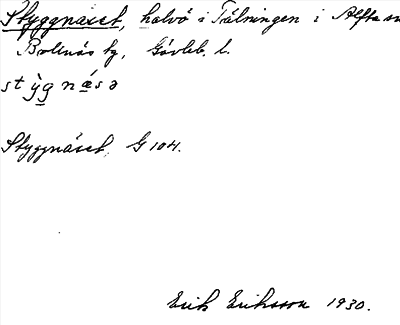 Styggnäset, halvö i Tälningen i Alfta sn
Bollnäs tg, Gävleb. l.
stỳgnǽsə
Styggnäset, G 104.
Erik Eriksson 1930.